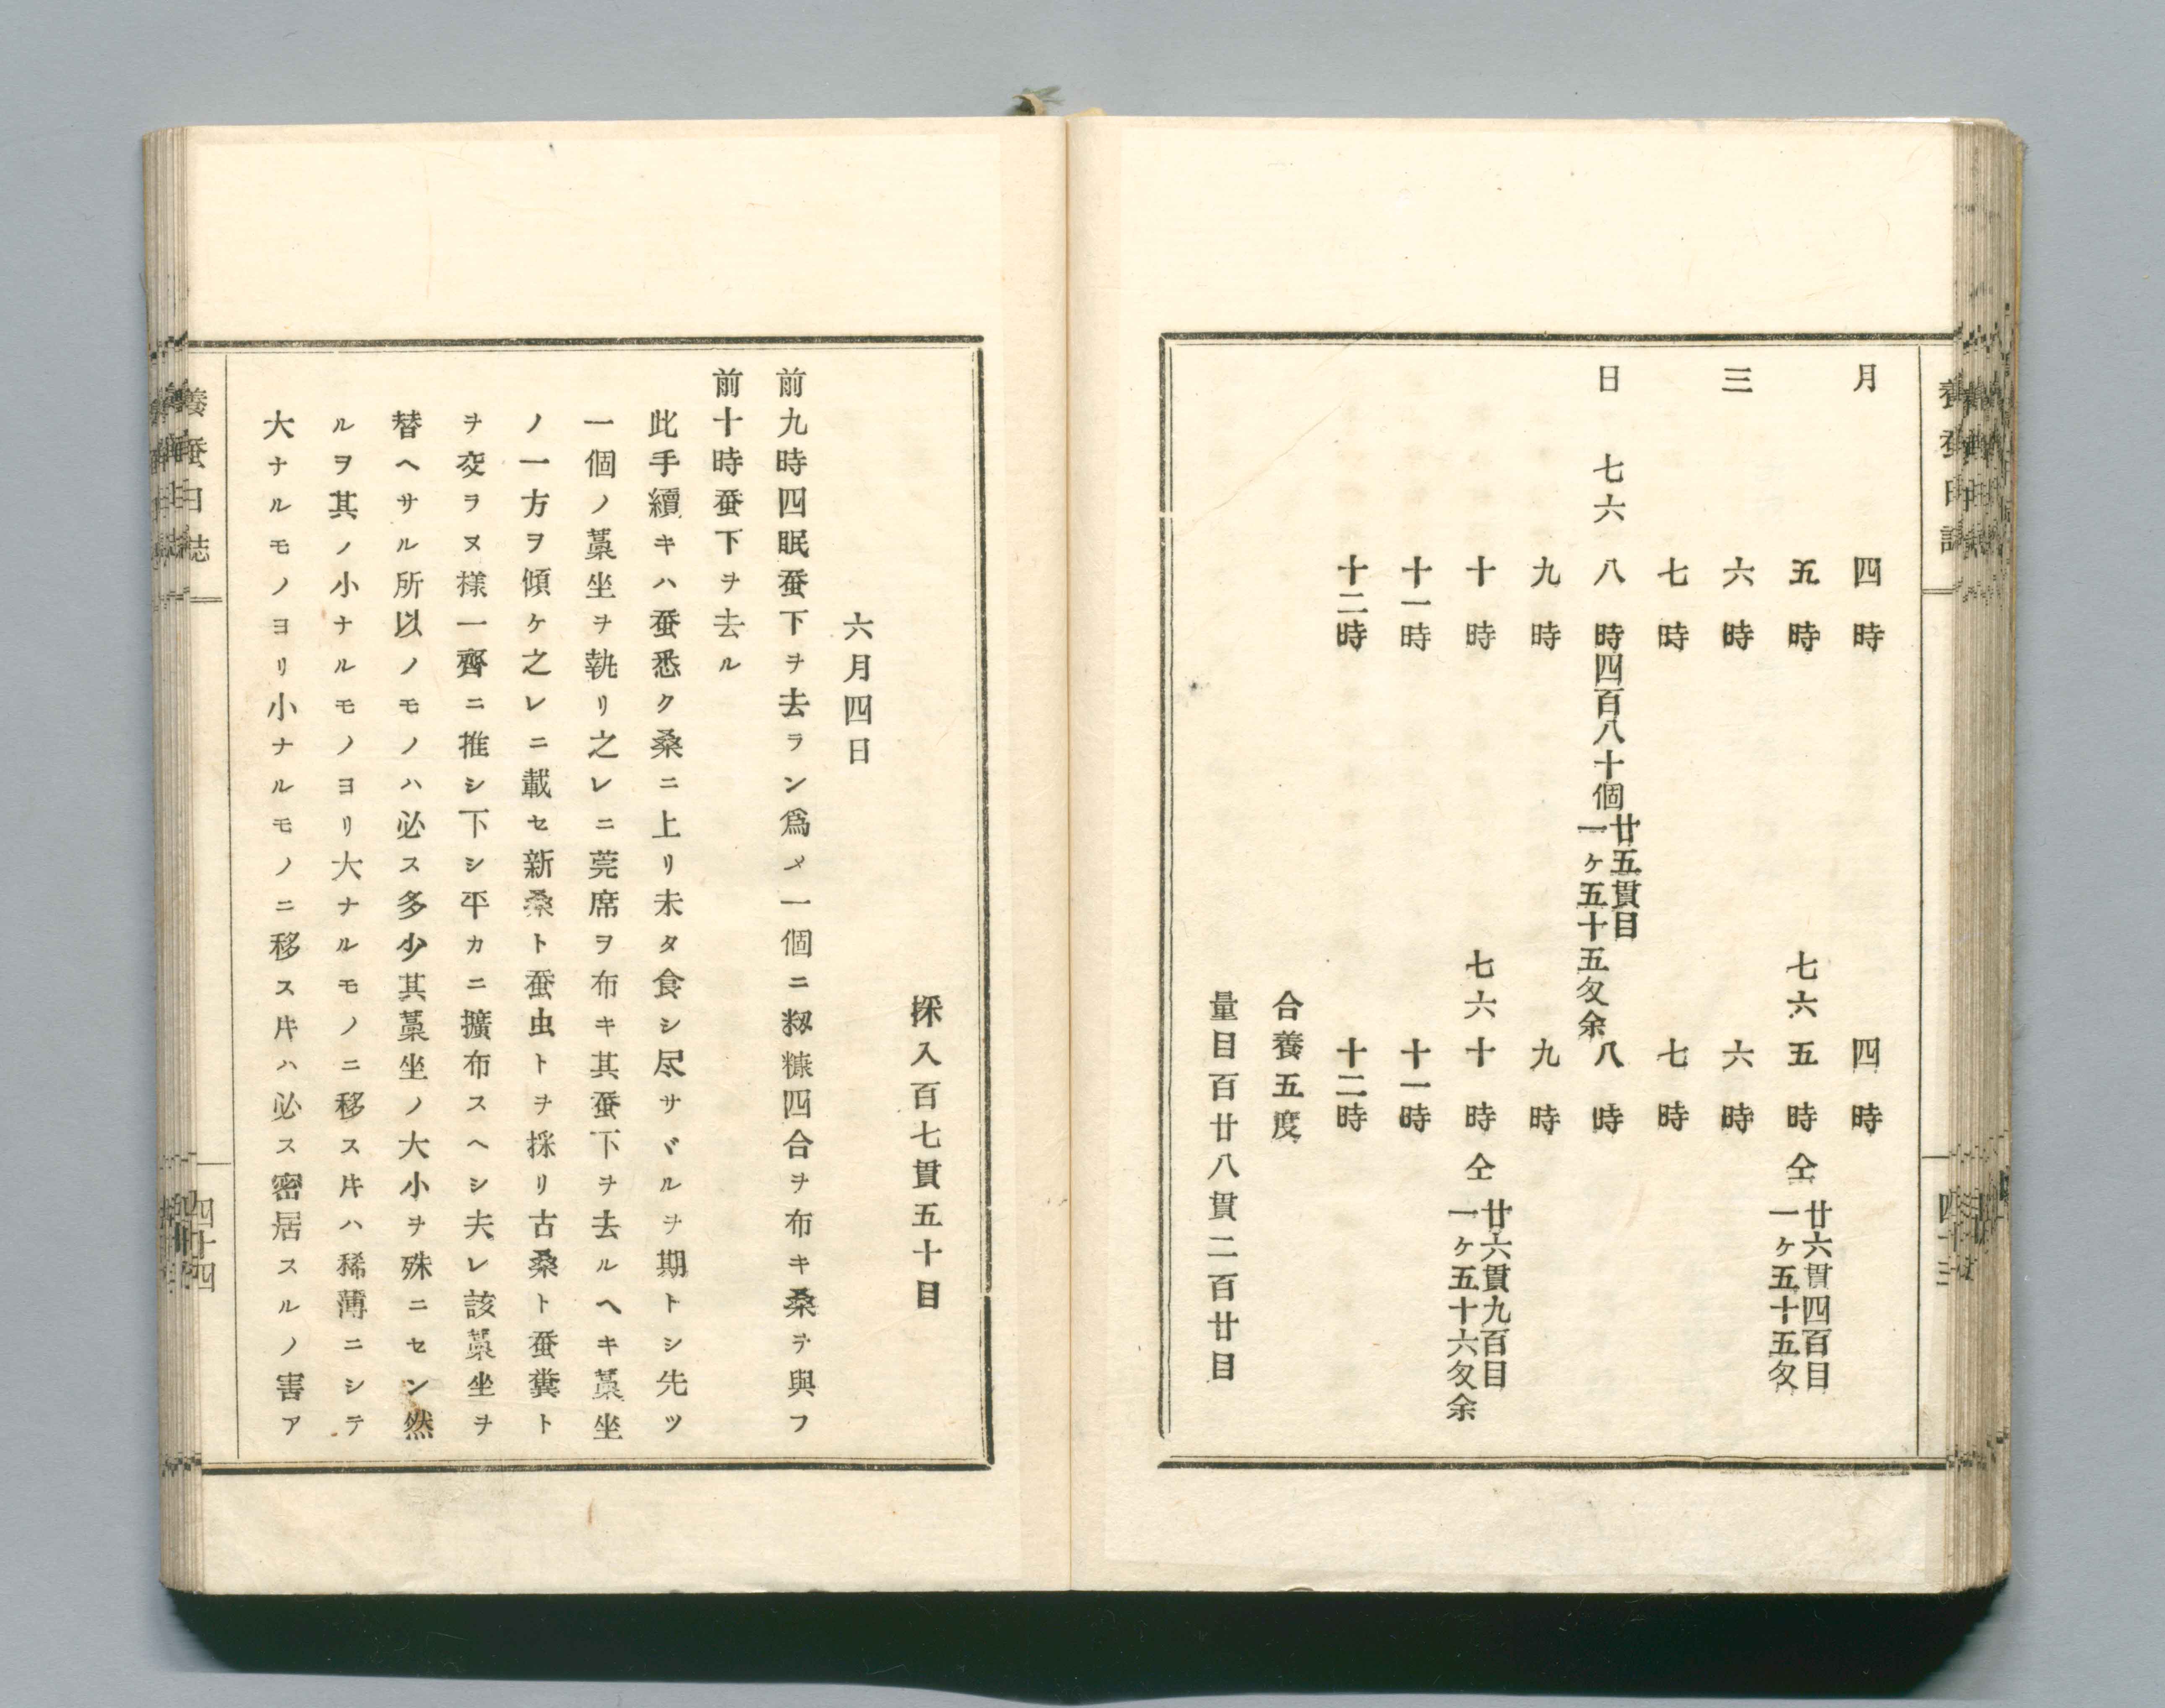 養蚕日誌
四十三
月　四時　四時
五時　七六　五時　仝　廿六貫四百目　一ヶ五十五匁
三　六時　六時
七時　七時
日　七六　八時　四百八十個　廿五貫目　一ヶ五十五匁余　八時
九時　九時
十時　七六　十時　仝　廿六貫九百目　一ヶ五十六匁余
十一時　十一時
十二時　十二時
合養五度
量目百廿八貫二百廿目
採入百七貫五十目
六月四日
前九時四眠蚕下ヲ去ラン爲メ一個ニ籾糠四合ヲ布キ桑ヲ與フ
前十時蚕下ヲ去ル
此手續キハ蚕悉ク桑ニ上リ未タ食シ尽サヾルヲ期トシ先ツ
一個ノ藁坐ヲ執リ之レニ莞席ヲ布キ其蚕下ヲ去ルヘキ藁坐
ノ一方ヲ傾ケ之レニ載セ新桑ト蚕虫トヲ採リ古桑ト蚕糞ト
ヲ交ラヌ様一齊ニ推シ下シ平カニ擴布スヘシ夫レ該藁坐ヲ
替ヘサル所以ノモノハ必ス多少其藁坐ノ大小ヲ殊ニセン然
ルヲ其ノ小ナルモノヨリ大ナルモノニ移ス片ハ稀薄ニシテ
大ナルモノヨリ小ナルモノニ移ス片ハ必ス密居スルノ害ア
養蚕日誌
四十四